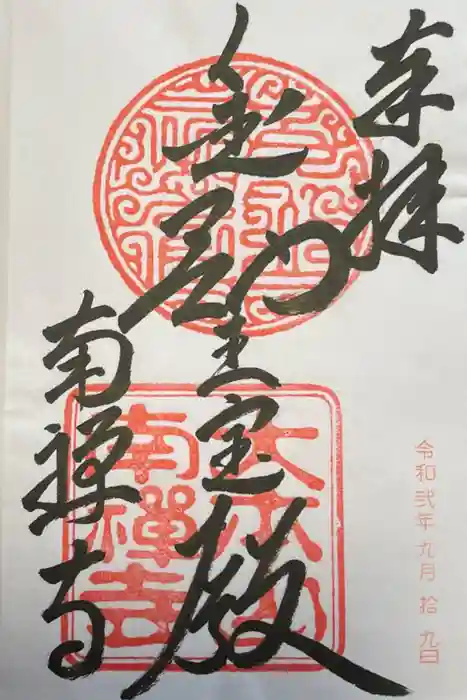 奉拝
令和弐年 九月 拾 九日
金剛王宝殿
大本山
南禪寺
南禅寺